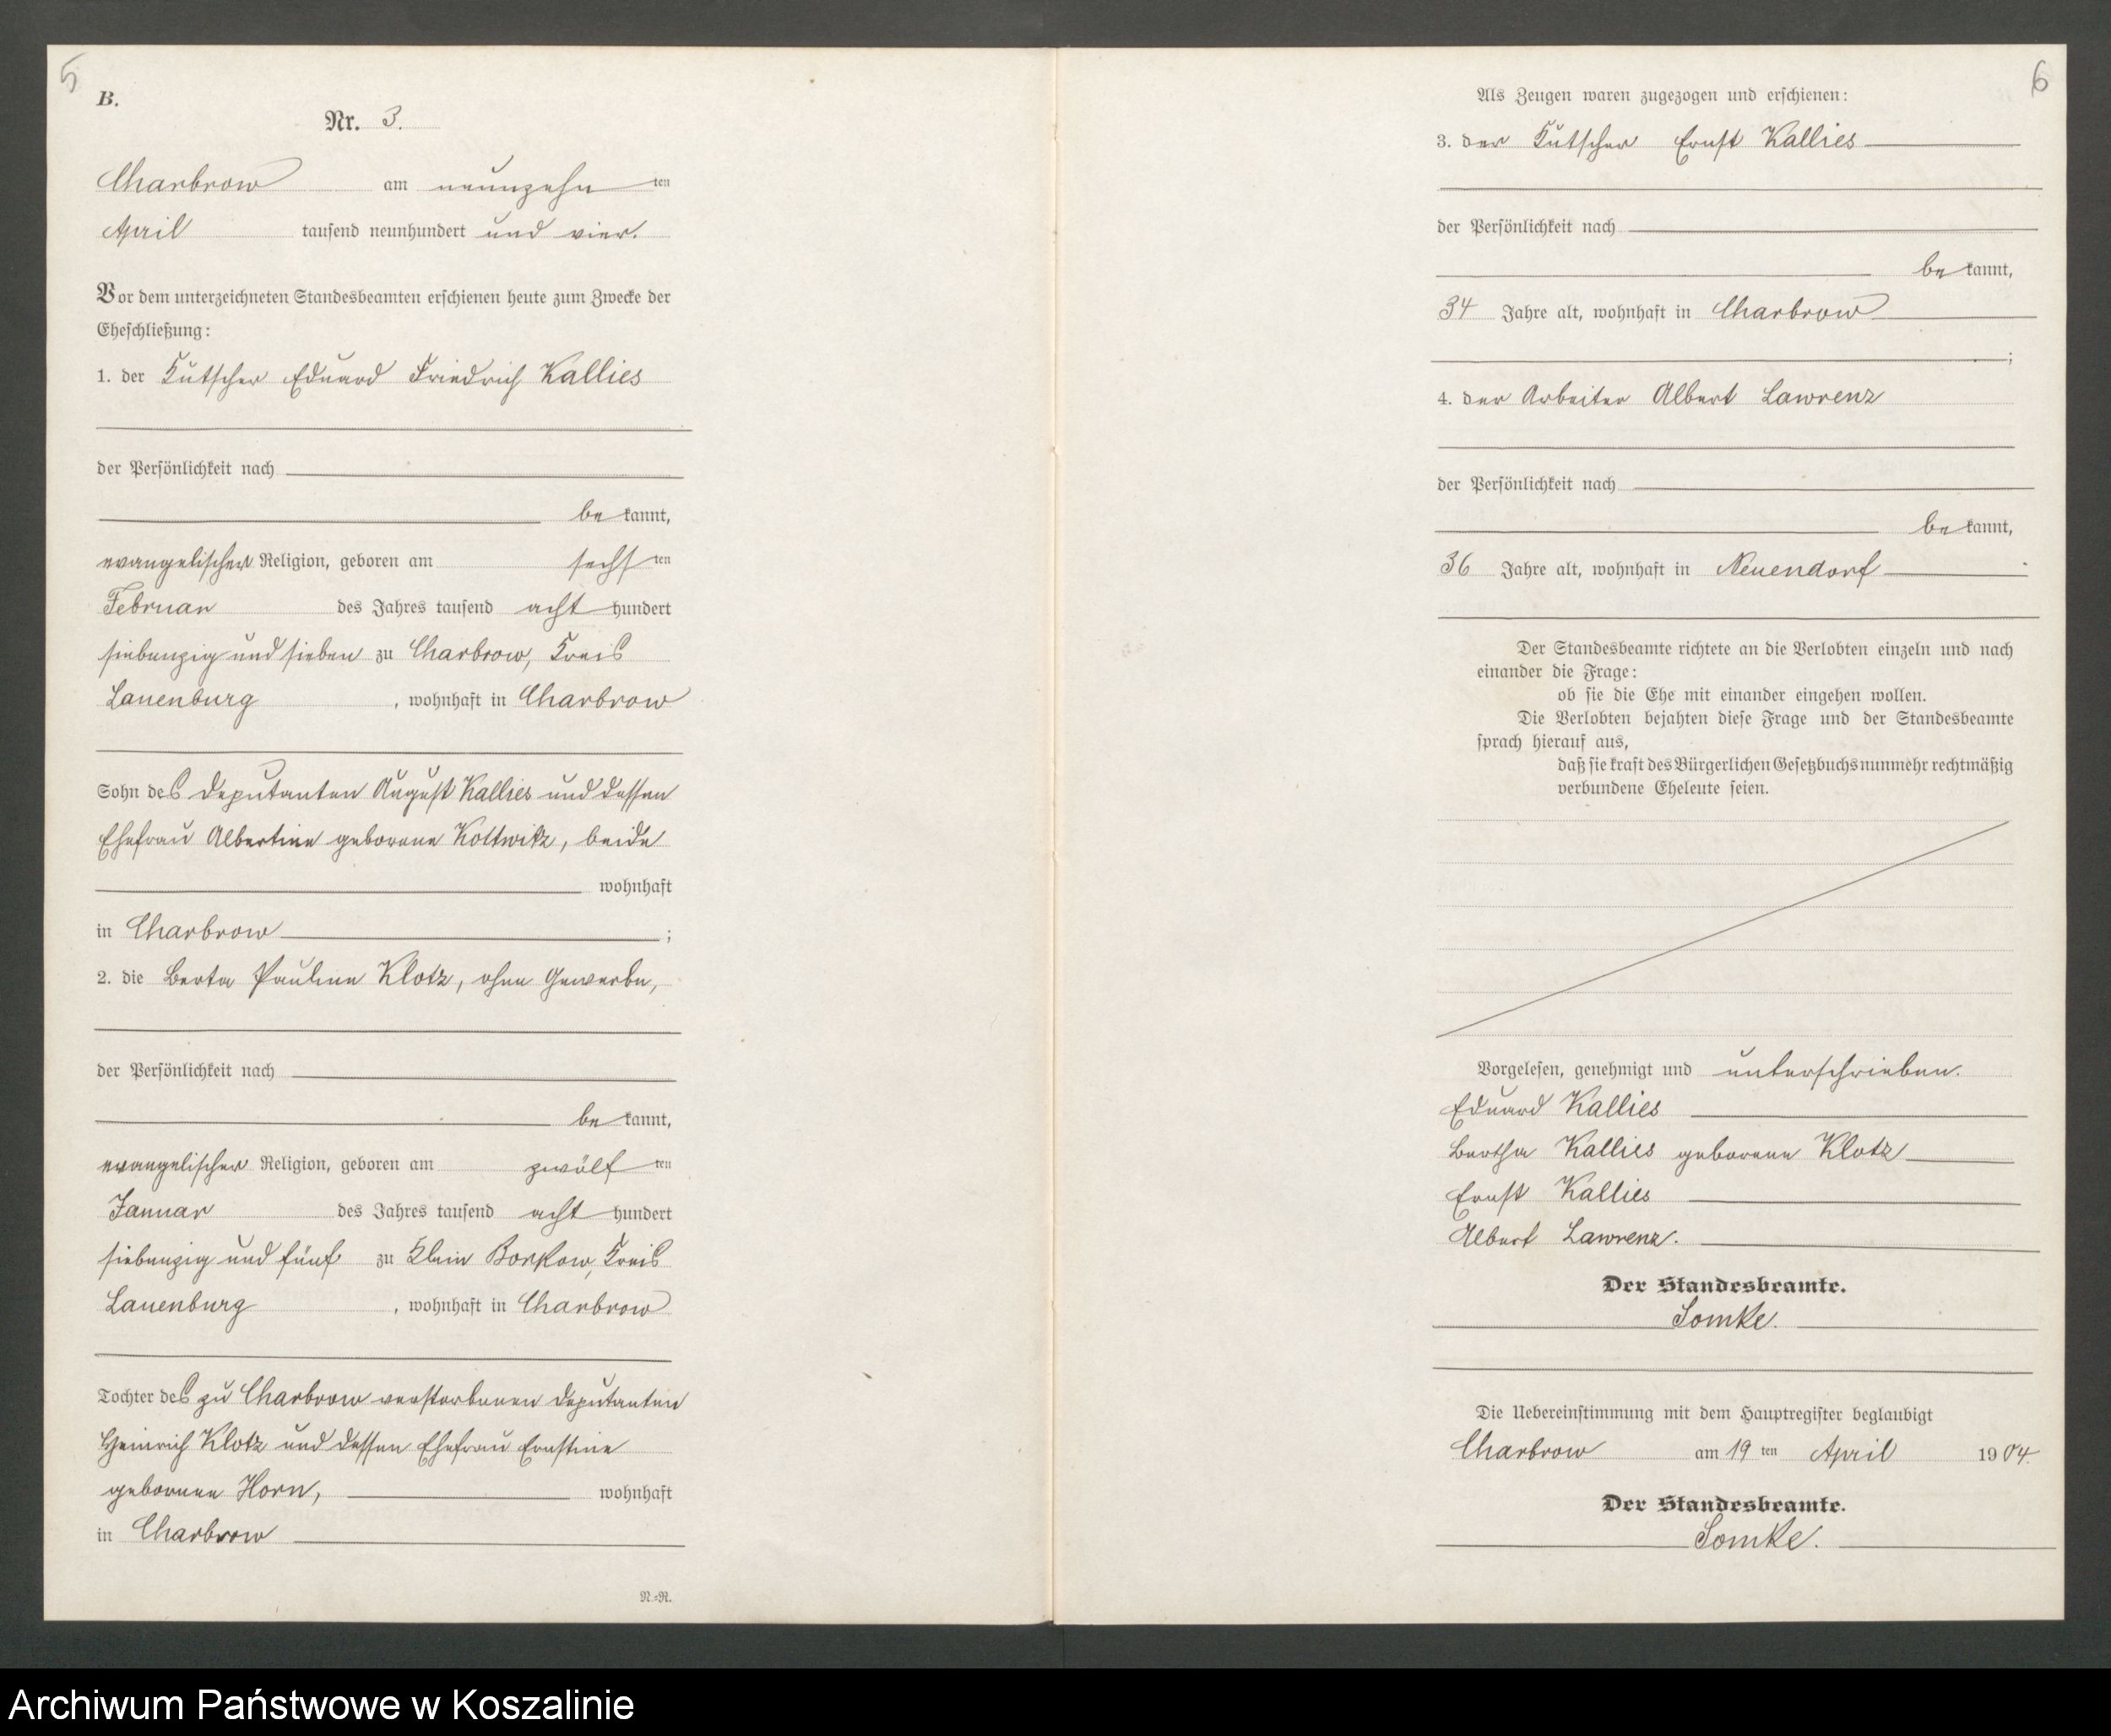 5
B.
Nr. 3.
Charbrow am neunzehn ten
April tausend neunhundert und vier.
Vor dem unterzeichneten Standesbeamten erschienen heute zum Zwecke der
Eheschließung:
1. der Kutscher Eduard Friedrich Kallies
der Persönlichkeit nach
be kannt,
evangelischer Religion, geboren am sechs ten
Februar des Jahres tausend acht hundert
siebenzig und sieben zu Charbrow, Kreis
Lauenburg, wohnhaft in Charbrow
Sohn des Deputanten August Kallies und dessen
Ehefrau Albertine geborene Kottwitz, beide
wohnhaft
in Charbrow ;
2. die Berta Pauline Klotz, ohne Gewerbe,
der Persönlichkeit nach
be kannt,
evangelischer Religion, geboren am zwölf ten
Januar des Jahres tausend acht hundert
siebenzig und fünf zu Klein Borkow, Kreis
Lauenburg, wohnhaft in Charbrow
Tochter des zu Charbrow verstorbenen Deputanten
Heinrich Klotz und dessen Ehefrau Ernstine
geborenen Horn, wohnhaft
in Charbrow
N.=R.
6
Als Zeugen waren zugezogen und erschienen:
3. der Kutscher Ernst Kallies
der Persönlichkeit nach
be kannt,
34 Jahre alt, wohnhaft in Charbrow
;
4. der Arbeiter Albert Lawrenz
der Persönlichkeit nach
be kannt,
36 Jahre alt, wohnhaft in Neuendorf
Der Standesbeamte richtete an die Verlobten einzeln und nach
einander die Frage:
ob sie die Ehe mit einander eingehen wollen.
Die Verlobten bejahten diese Frage und der Standesbeamte
sprach hierauf aus,
daß sie kraft des Bürgerlichen Gesetzbuchs nunmehr rechtmäßig
verbundene Eheleute seien.
Vorgelesen, genehmigt und unterschrieben.
Eduard Kallies
Bertha Kallies geborene Klotz
Ernst Kallies
Albert Lawrenz.
Der Standesbeamte.
Somke.
Die Uebereinstimmung mit dem Hauptregister beglaubigt
Charbrow am 19 ten April 1904.
Der Standesbeamte.
Somke.
Archiwum Państwowe w Koszalinie